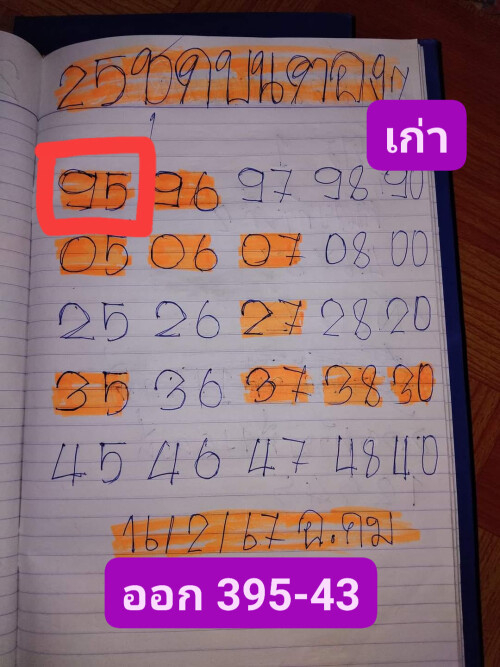 25ชุดบนคาองๆ
เก่า
95 96 97 98 90
05 06 07 08 00
25 26 27 28 20
35 36 37 38 30
45 46 47 48 40
16/2/67 ฉ.คม
ออก 395-43